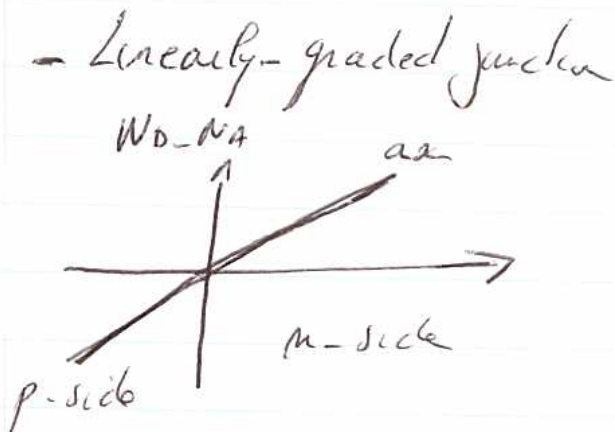 - Linearly-graded junction
ND-NA
ax
n-side
p-side